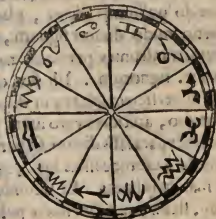 ♋
♊
♉
♈
♓
♒
♑
♐
♏
♎
♍
♌